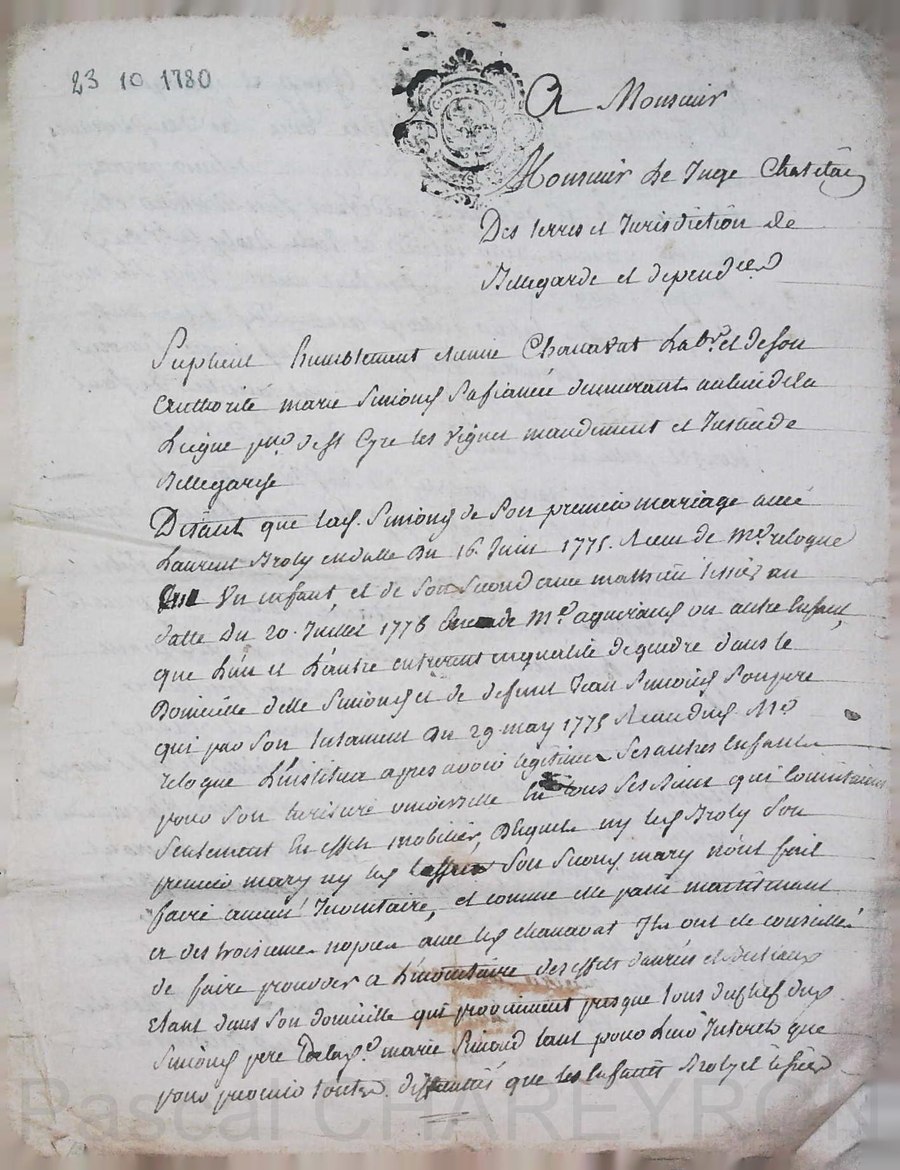 23 10 1780
A Monsieur
Monsieur Le Juge Chatelain
Des terres et Jurisdiction de
Bellegarde et depend.ces
Suplient humblement etienne Chanavat Lab.r et de son
authorité marie Simond sa fiancée demeurant au lieu de la
Liegue p.sse de st Cyre les vignes mandement et Justice de
Bellegarde
Disant que lad. Simond de Son premier mariage avec
Laurent Broly en datte du 16. Juin 1775. Receu de M.e relogue
un enfant, et de son second avec mathieu tissier en
datte du 20. Juillet 1778 M.e un autre Enfant,
que L'un et L'autre entrerent en qualité de gendre dans le
Domicille de lle Simond et de defunt Jean Simond Son pere
qui par son testament du 29 may 1775 Receu dud. M.e
relogue L'institua apres avoir legitimé Ses autres Enfants
pour Son heritiere universelle En tous Ses biens qui Consistaient
Seulement En effets mobiliers, Desquels ny led. Broly Son
premier mary ny led. tissier Son Second mary n'ont fait
faire aucun Inventaire, et comme elle passe maintenant
a des troisieme nopces avec led. chanavat Ils ont été conseillé
de faire proceder a L'inventaire des effets danrées et bestiaux
Etant dans son domicille qui proviennent presque tous du chef dud.
Simond pere de lad. marie Simond tant pour Leur Interets que
pour prevenir toutes difficultés que les Enfants Broly et tissier
Pascal CHAREYRON